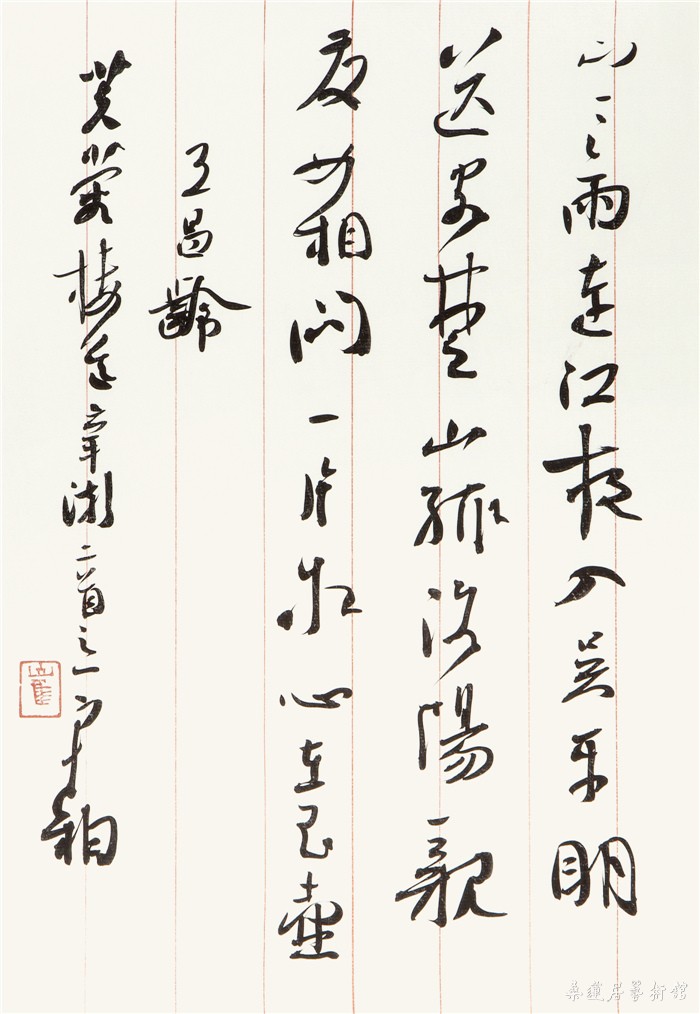 寒雨連江夜入吳平明
送客楚山孤洛陽親
友如相問一片冰心在玉壺
王昌齡
芙蓉樓送辛漸二首之一寒柏
崔
桑蓮居藝術館